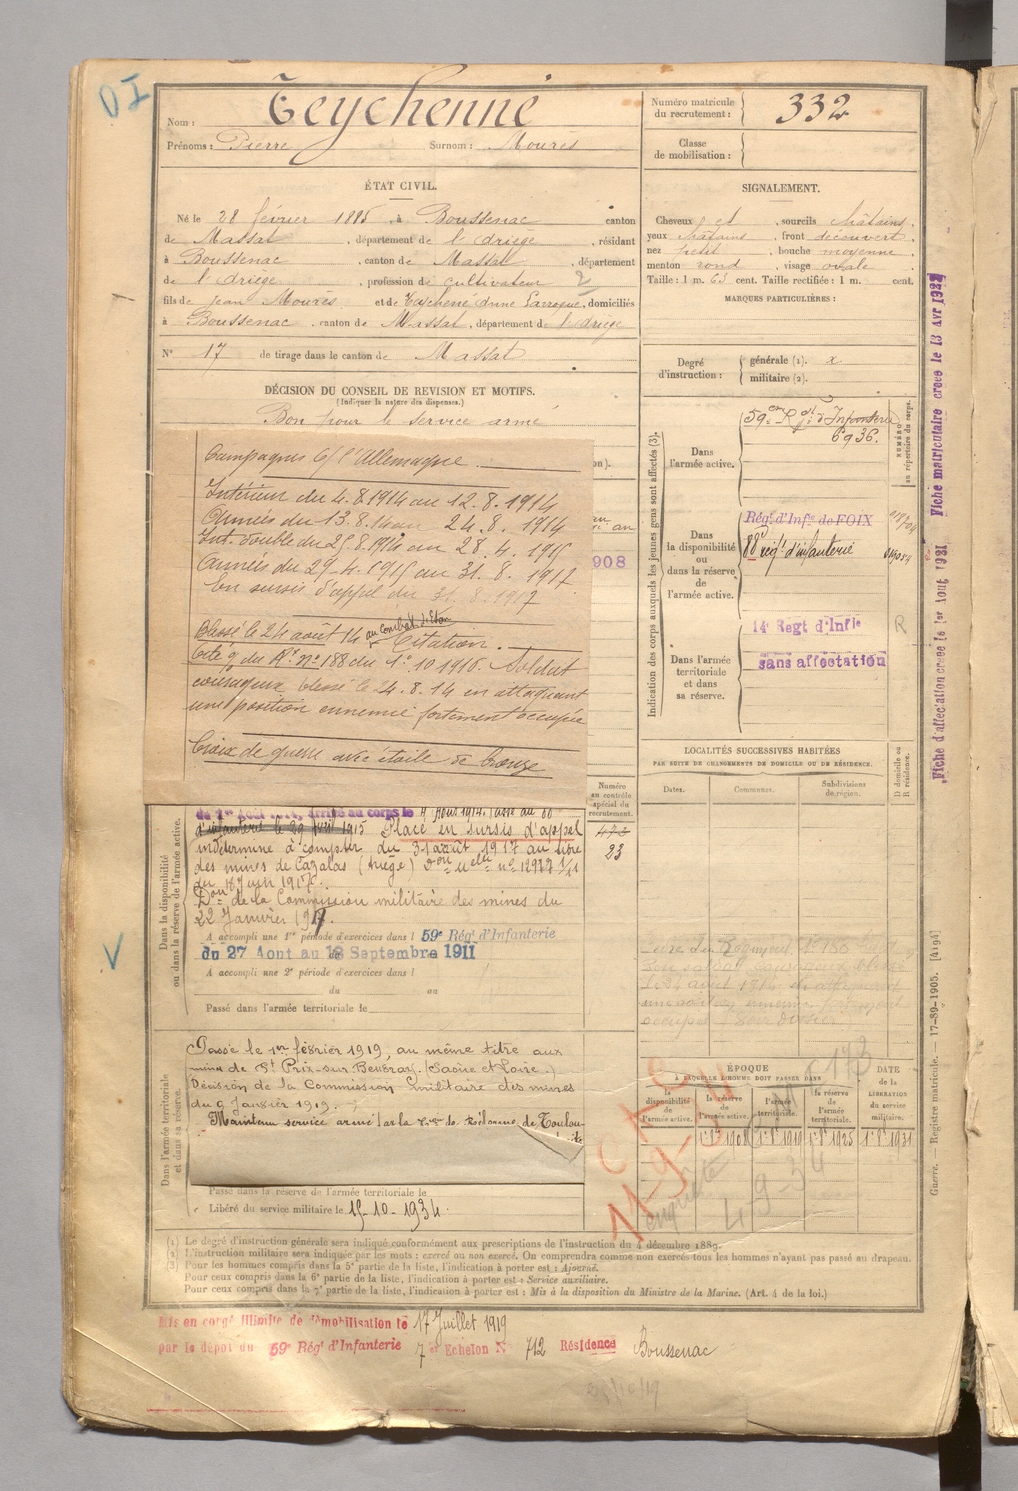 OI
Nom : Teychenné
Prénoms : Pierre Surnom : Mourès
Numéro matricule du recrutement : 332
Classe de mobilisation :
ÉTAT CIVIL.
Né le 28 février 1885, à Boussenac canton
de Massat, département de l'Ariège, résidant
à Boussenac, canton de Massat, département
de l'Ariège, profession de cultivateur 2
fils de Jean Mourès et de Teychené Anne Larroque, domiciliés
à Boussenac, canton de Massat, département de l'Ariège
N° 17 de tirage dans le canton de Massat
SIGNALEMENT.
Cheveux et, sourcils châtains,
yeux châtains, front découvert,
nez petit, bouche moyenne,
menton rond, visage ovale.
Taille : 1 m. 63 cent. Taille rectifiée : 1 m. cent.
MARQUES PARTICULIÈRES :
Degré d'instruction : générale (1). x
militaire (2).
DÉCISION DU CONSEIL DE REVISION ET MOTIFS.
(Indiquer la nature des dispenses.)
Bon pour le service armé
Campagnes C/ l'Allemagne
Intérieur du 4.8.1914 au 12.8.1914
Armées du 13.8.14 au 24.8.1914
Int. double du 25.8.1914 au 28.4.1915
Armées du 29.4.1915 au 31.8.1917
En sursis d'appel du 31.8.1917
Blessé le 24 août 14 au combat d'
Citation.
Cité q. du Rt n° 188 du 1er 10 1916. Soldat
courageux blessé le 24.8.14 en attaquant
une position ennemie fortement occupée
Croix de guerre avec étoile de bronze
908
Indication des corps auxquels les jeunes gens sont affectés (3).
Dans l'armée active.
59em Rgt d'Infanterie
6936.
NUMÉRO au répertoire du corps.
Dans la disponibilité ou dans la réserve de l'armée active.
Régt d'Infie de FOIX
88e régt d'infanterie
Dans l'armée territoriale et dans sa réserve.
14e Regt d'Infie
sans affectation
R
Fiche matriculaire créée le 13 Avr 1927
Fiche d'affectation créée le 1er Aout 1931
LOCALITÉS SUCCESSIVES HABITÉES
PAR SUITE DE CHANGEMENTS DE DOMICILE OU DE RÉSIDENCE.
Dates. Communes. Subdivisions de région. D domicile ou R résidence.
Numéro au contrôle spécial du recrutement.
23
Dans la disponibilité ou dans la réserve de l'armée active.
du 1er Août 1914, arrivé au corps le 4 Août 1914. Passé au
d'infanterie le 29 1915 Placé en sursis d'appel
indéterminé à compter du 31 août 1917 au titre
des mines de (Ariège) Don Melle n° 12977 1/11
du 18 Juin 1917.
Don de la Commission militaire des mines du
22 Janvier 1917.
A accompli une 1re période d'exercices dans l 59e Rég' d'Infanterie
du 27 Aout au 18 Septembre 1911
A accompli une 2e période d'exercices dans l
du au
Passé dans l'armée territoriale le
V
Dans l'armée territoriale et dans sa réserve.
Passé le 1er février 1919, au même titre aux
mines de St Prix-sur-Beuvray. (Saône et Loire.)
Décision de la Commission militaire des mines
du 9 Janvier 1919.
Maintenu service armé par la de Réforme de Toulouse
Passé dans la réserve de l'armée territoriale le
Libéré du service militaire le 15-10-1934.
ÉPOQUE
À LAQUELLE L'HOMME DOIT PASSER DANS
la disponibilité de l'armée active. la réserve de l'armée active. l'armée territoriale. la réserve de l'armée territoriale. DATE de la LIBÉRATION du service militaire.
1er 8bre 1908 1er 8bre 1919 1er 8bre 1925 1er 8bre 1931
4-9-34
(1) Le degré d'instruction générale sera indiqué conformément aux prescriptions de l'instruction du 4 décembre 1889.
(2) L'instruction militaire sera indiquée par les mots : exercé ou non exercé. On comprendra comme non exercés tous les hommes n'ayant pas passé au drapeau.
(3) Pour les hommes compris dans la 5e partie de la liste, l'indication à porter est : Ajourné.
Pour ceux compris dans la 6e partie de la liste, l'indication à porter est : Service auxiliaire.
Pour ceux compris dans la 7e partie de la liste, l'indication à porter est : Mis à la disposition du Ministre de la Marine. (Art. 4 de la loi.)
Guerre. — Registre matricule. — 17-89-1905. [4194]
Mis en congé illimité de démobilisation le 17 Juillet 1919
par le dépôt du 59e Rég' d'Infanterie 7e Echelon N° 712 Résidence Boussenac